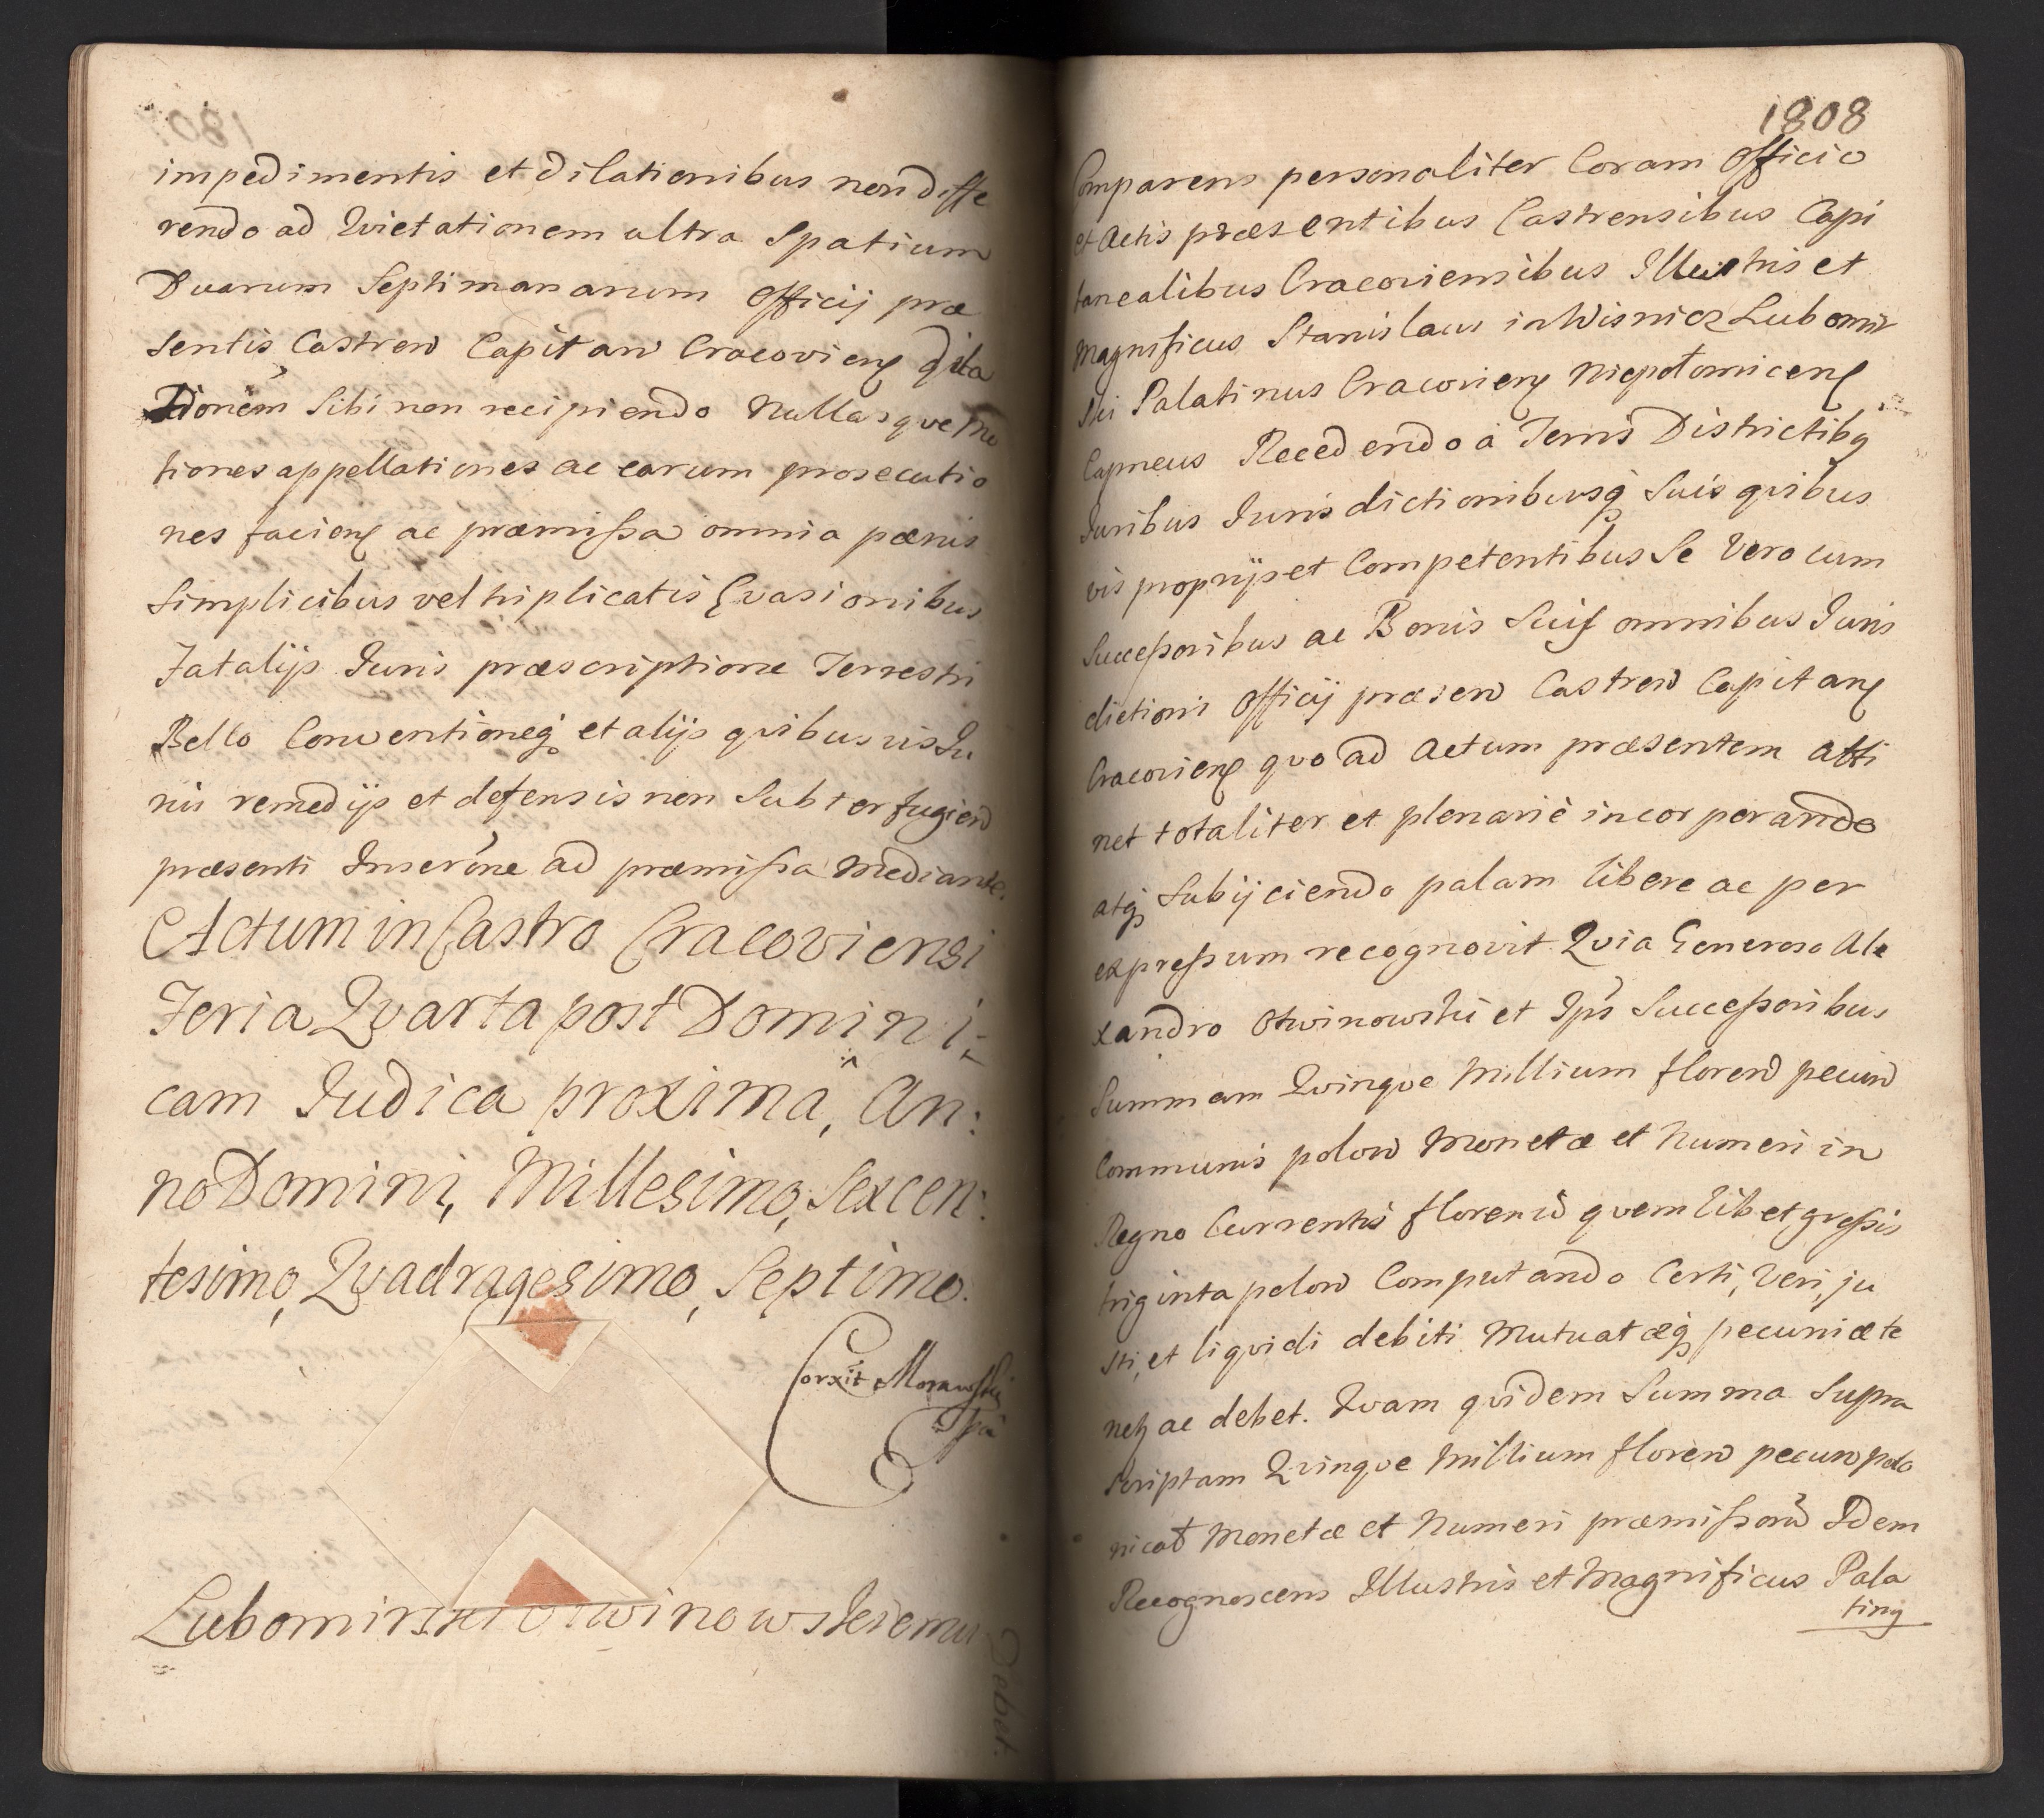 impedimentis et dilationibus non diffe
rendo ad Qvietationem ultra Spatium
Duarum Septimanarum Officij præ
sentis Castren Capitan Cracovien dila
tionem Sibi non recipiendo Nullasque Mo
tiones appellationes ac earum prosecutio
nes facien ac præmissa omnia pœnis
Simplicibus vel triplicatis Evasionibus
Fatalijs Juris præscriptione Terrestri
Bello Conventioneq et alijs qvibusvis Ju
ris remedijs et defensis non Subterfugien
præsenti Inserõne ad præmissa Mediante.
Actum in Castro Cracoviensi
Feria Qvarta post Domini:
cam Judica proxima, An:
no Domini, Millesimo, Sexcen:
tesimo, Qvadragesimo, Septimo.
Corxit Morawski
Lubomirski Otwinowskiemu
Debet.
1808
Comparens personaliter Coram Officio
et Actis præsentibus Castrensibus Capi
tanealibus Cracoviensibus Illustris et
Magnificus Stanislaus in Wisnicz Lubomir
ski Palatinus Cracovien Niepołomicen
Capneus Recedendo à Terris Districtibq
Juribus Jurisdictionibusq Suis qvibus
vis proprijs et Competentibus Se Vero cum
Successoribus ac Bonis Suis omnibus Juris
dictioni Officij præsen Castren Capitan
Cracovien quo ad Actum præsentem atti
net totaliter et plenariè incorporando
atq Subijciendo palam libere ac per
expressum recognovit Qvia Generoso Ale
xandro Otwinowski et Ips Successoribus
Summam Qvinqve Millium floren pecun
Communis polon Monetæ et Numeri in
Regno Currentis florenũ qvemlibet grossis
triginta polon Computando Certi, Veri, ju
sti, et liqvidi debiti Mutuatæq pecuniæ te
netq ac debet. Qvam qvidem Summa Supra
scriptam Qvinqve Millium floren pecun polo
nical Monetæ et Numeri præmissorũ Idem
Recognoscens Illustris et Magnificus Pala
tinq